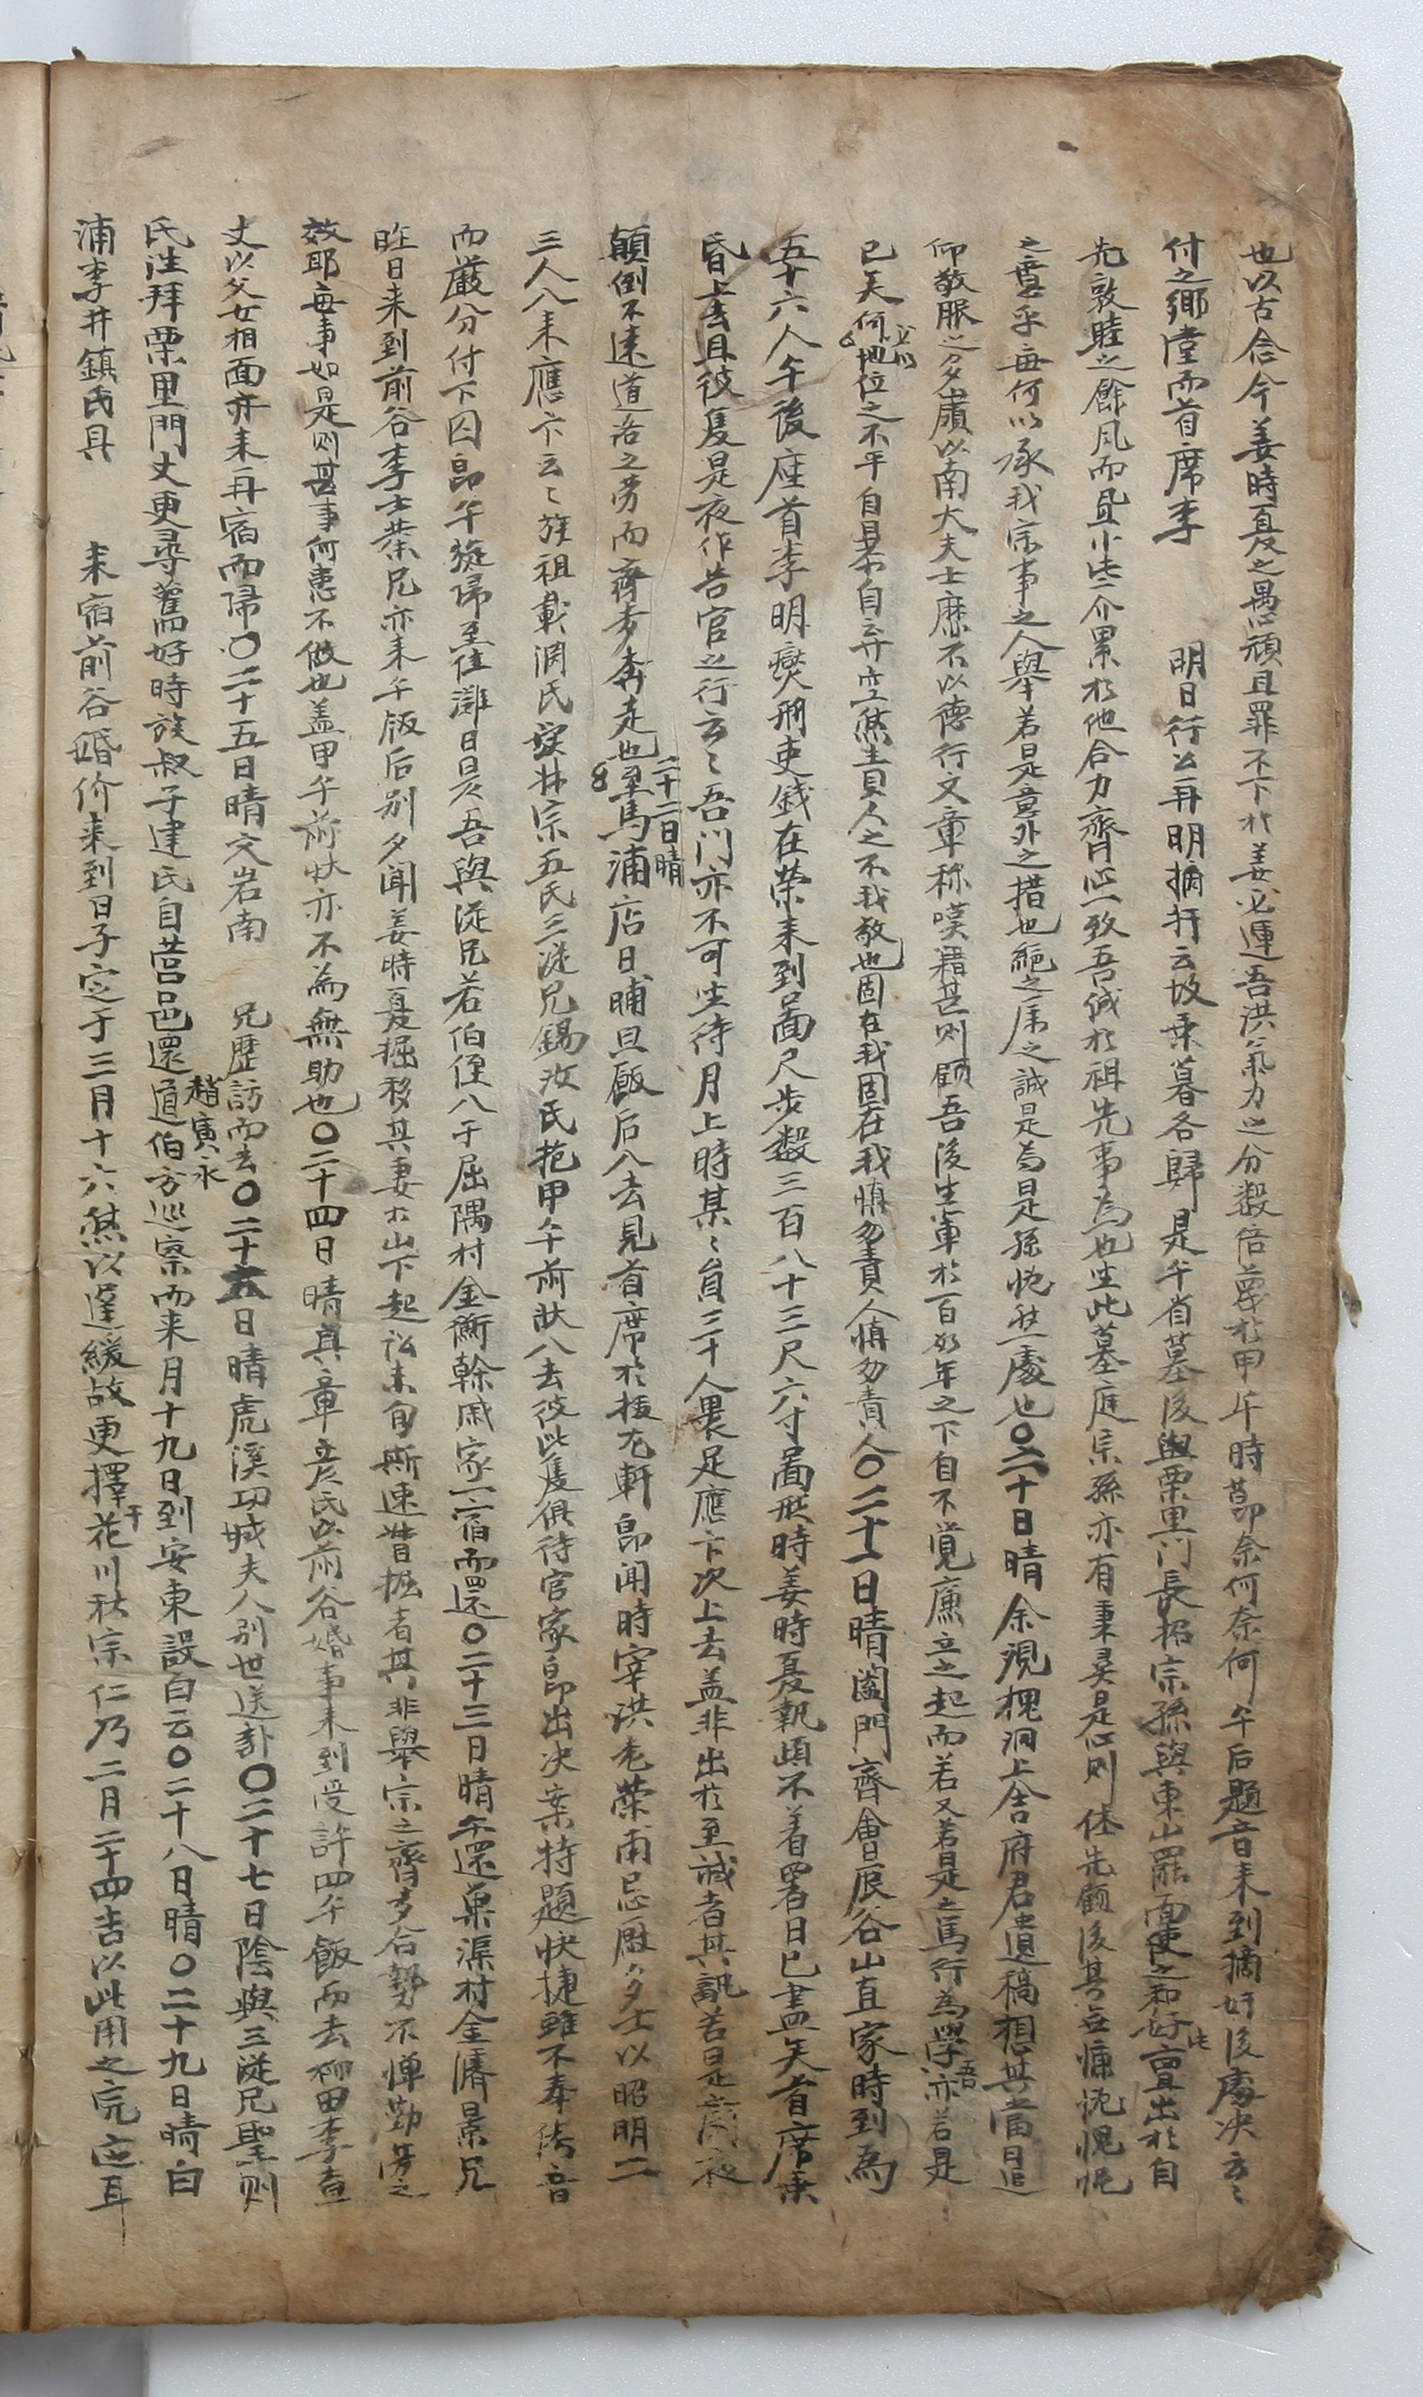 也以古合今姜時夏之愚頑且罪不下於姜必運吾洪氣力之分數倍蓰於甲午時節奈何奈何午后題音来到摘奸後處决云〻
付之鄉堂而首席李　明日行公再明摘奸云故乗暮各歸是午省墓後與栗里門長招宗孫與東山罷面使之和好此亶出於自
先敦睦之餘風而且小些介累於他合力齊心一致吾誠於祖先事為也生此墓庭宗孫亦有秉彛是心則体先顧後其無慷慨愧
之意乎每何以承我宗事之人舉若是意外之措也絕之斥之誠是為是孫愧無處也○二十日晴余現槐洞上舍府君遺稿想其當日追
仰敬服之多嶺以南大夫士靡不以德行文章称嘆籍甚則顧吾後生軰於一百外年之下自不覚廉立之起而若又若是之馬行為學吾亦若是
已矣何必以地位之不平自暴自弃空然責人之不我敬也固在我固在我愼勿責人愼勿責人○二十一日晴闔門齊會辰谷山直家時到為
五十六人午後座首李明爕刑吏錢在榮来到圖尺步數三百八十三尺六寸圖形時姜時夏執頉不着署日已盡矣首席乗
昏上去且彼隻是夜作告官之行云〻吾門亦不可坐待月上時某〻員三十人畏足應卞次上去盖非出於至誠者其孰若是
顛倒不遠道洛之勞而齊步奔走也二十二日晴至馬浦店日晡旦飯后入去見首席於挹尤軒卽闻時宰洪老榮甫忌厥多士以昭明二
三人入来應卞云〻族祖載润氏宗五氏三從兄錫汝氏范甲午前狀入去彼此隻俱待官家卽出决案特題快捷雖不奉
而嚴分付下囚卽午旋歸至佳灘日昃吾與從兄若伯侄入于屈隅村金衡幹戚家一宿而還○二十三日晴午還巢渠村金濬景兄
昨日来到前谷李士荣兄亦来午飯后别夕闻姜時夏掘移其妻於山下起訟未旬斯速昔掘者其非舉宗之齊多合勢不憚勤勞之
效耶每事如是則甚事何患不做也盖甲午前狀亦不為無助也○二十四日晴真章彦氏以前谷婚事来到受許四午飯而去柳田李查
丈以父女相面亦来再宿而歸○二十五日晴文岩南　兄歷訪而去○二十六日晴虎溪功城夫人别世送訃○二十七日陰與三從兄聖则
氏往拜栗里門丈更尋舊好時族叔子建氏自营邑還道伯趙寅永方巡察而来月十九日到安東設白云○二十八日晴○二十九日晴白
浦李井鎮氏具　来宿前谷婚价来到日子定于三月十六然以遲緩故更擇于花川秋宗仁乃二月二十四吉以此用之完定耳